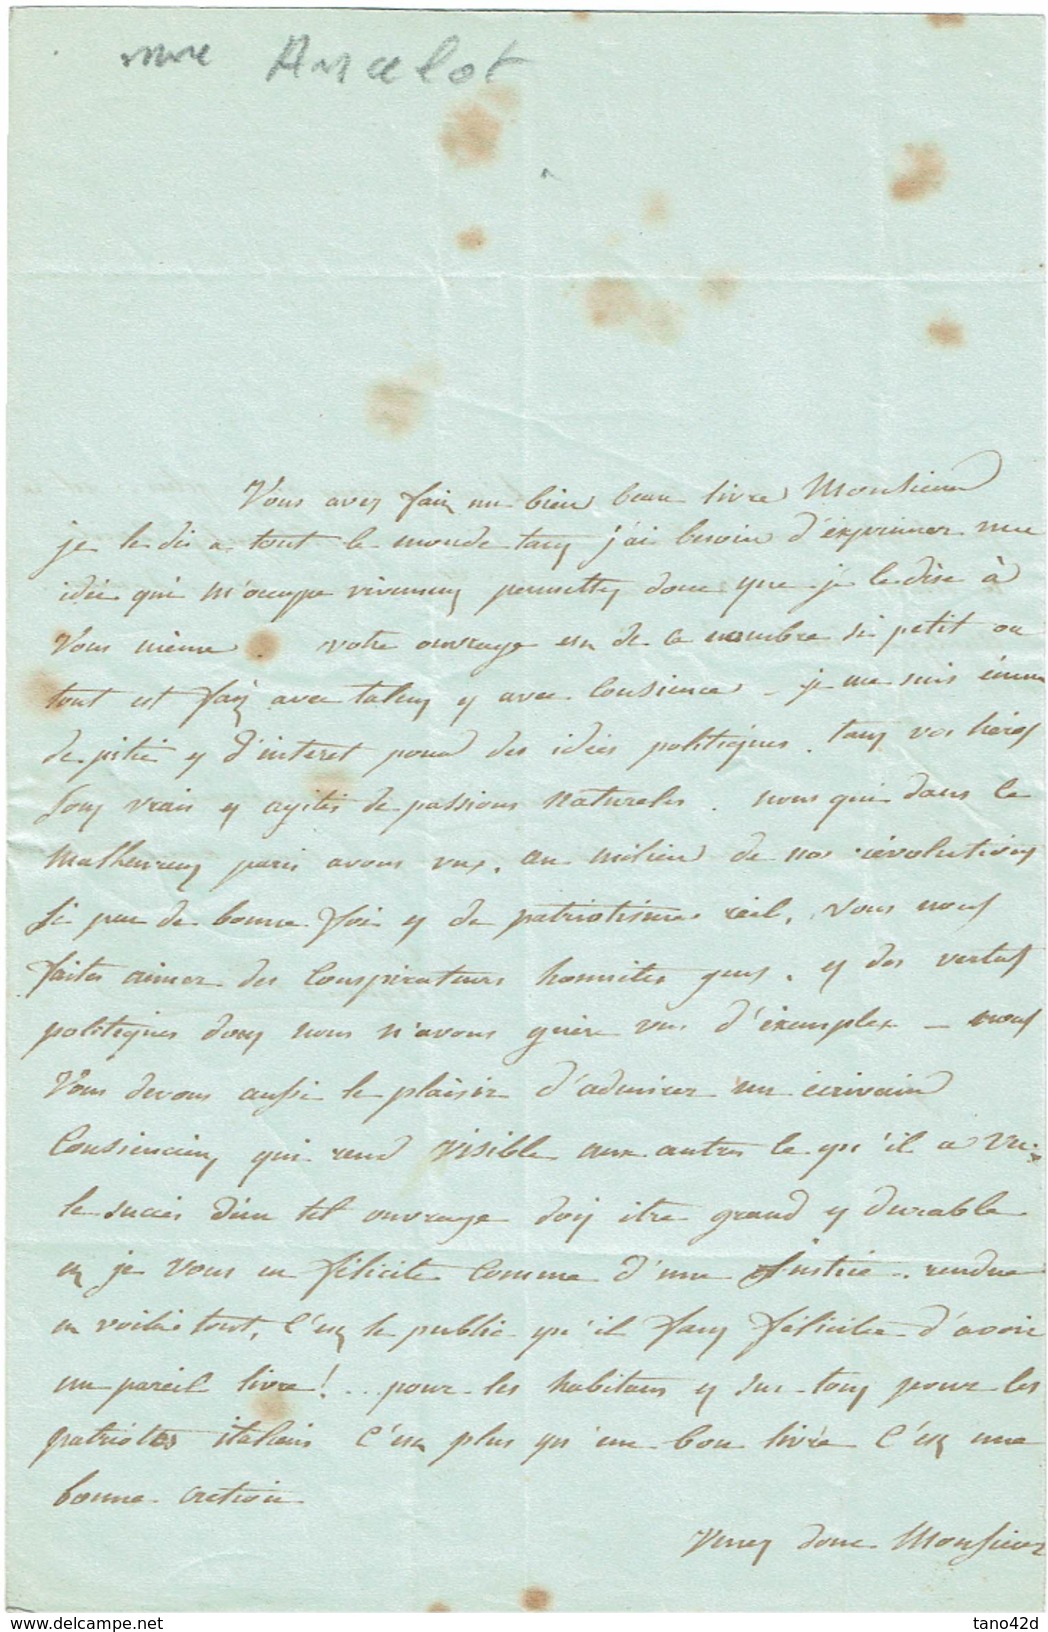 mme Ancelot
Vous avez fait un bien beau livre Monsieur
je le dis a tout le monde tant j'ai besoin d'exprimer une
idée qui m'occupe vivement permettez donc que je le dise à
Vous même. votre ouvrage est de ce nombre si petit ou
tout est fait avec talent et avec Consience - je me suis émue
de pitié et d'interet pour des idées politiques. tant vos héros
sont vrais et agités de passions naturelles. nous qui dans le
malheureux paris avons vus, au milieu de nos révolutions
si peu de bonne foi et de patriotisme réel, vous nous
faites aimer des Conspirateurs honnêtes gens, et des vertus
politiques dont nous n'avons guère vus d'exemples - nous
Vous devons aussi le plaisir d'admirer un écrivain
Consiencieux, qui rend visible aux autres ce qu'il a vu.
le succès d'un tel ouvrage doit être grand et durable
et je vous en félicite comme d'une justice rendue
en voila tout, C'est le public qu'il faut féliciter d'avoir
un pareil livre!... pour les habitans et sur-tout pour les
patriotes italiens C'est plus qu'un bon livre C'est une
bonne action.
Venez donc Monsieur
delcampe.net
tano42d